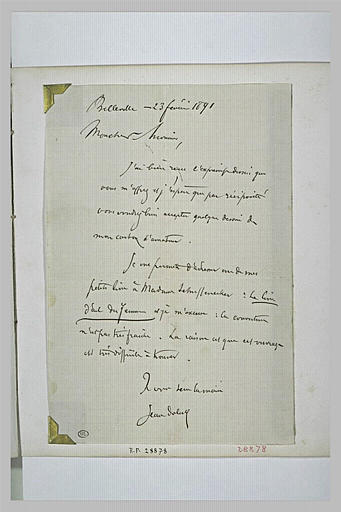 Belleville - 23 février 1891
Monsieur
J'ai bien reçu l'exquis dessin que
vous m'offrez et j'espère que par réciprocité
vous voudrez bien accepter quelque dessin de
mon carton d'amateur.
Je me permets d'adresser un de mes
petits livres à Madame Schuffenecker : Le livre
d'art des femmes et je m'excuse : la couverture
n'est pas très fraîche. La raison est que cet ouvrage
est très difficile à trouver.
A vous
Jean Dolent
R.F. 28878
28878